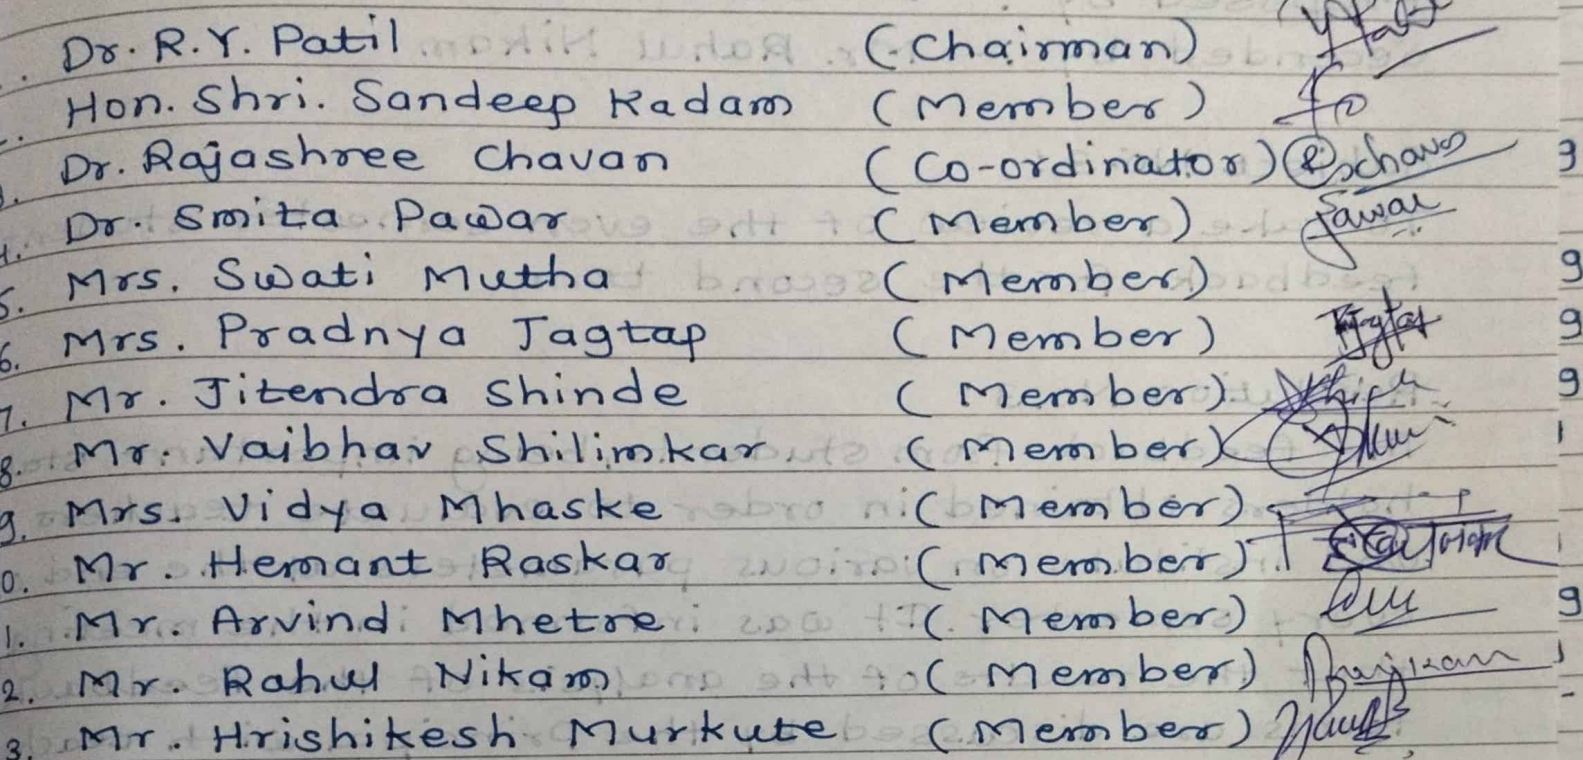 . Dr. R.Y. Patil (Chairman)
. Hon. Shri. Sandeep Kadam (Member)
3. Dr. Rajashree Chavan (Co-ordinator) Rschavan 9
4. Dr. Smita Pawar (Member) Pawar
5. Mrs. Swati Mutha (Member) 9
6. Mrs. Pradnya Jagtap (Member) 9
7. Mr. Jitendra Shinde (Member) 9
8. Mr. Vaibhav Shilimkar (Member) 1
9. Mrs. Vidya Mhaske (Member)
0. Mr. Hemant Raskar (Member) 1
1. Mr. Arvind Mhetre (Member) 9
2. Mr. Rahul Nikam (Member)
3. Mr. Hrishikesh Murkute (Member)